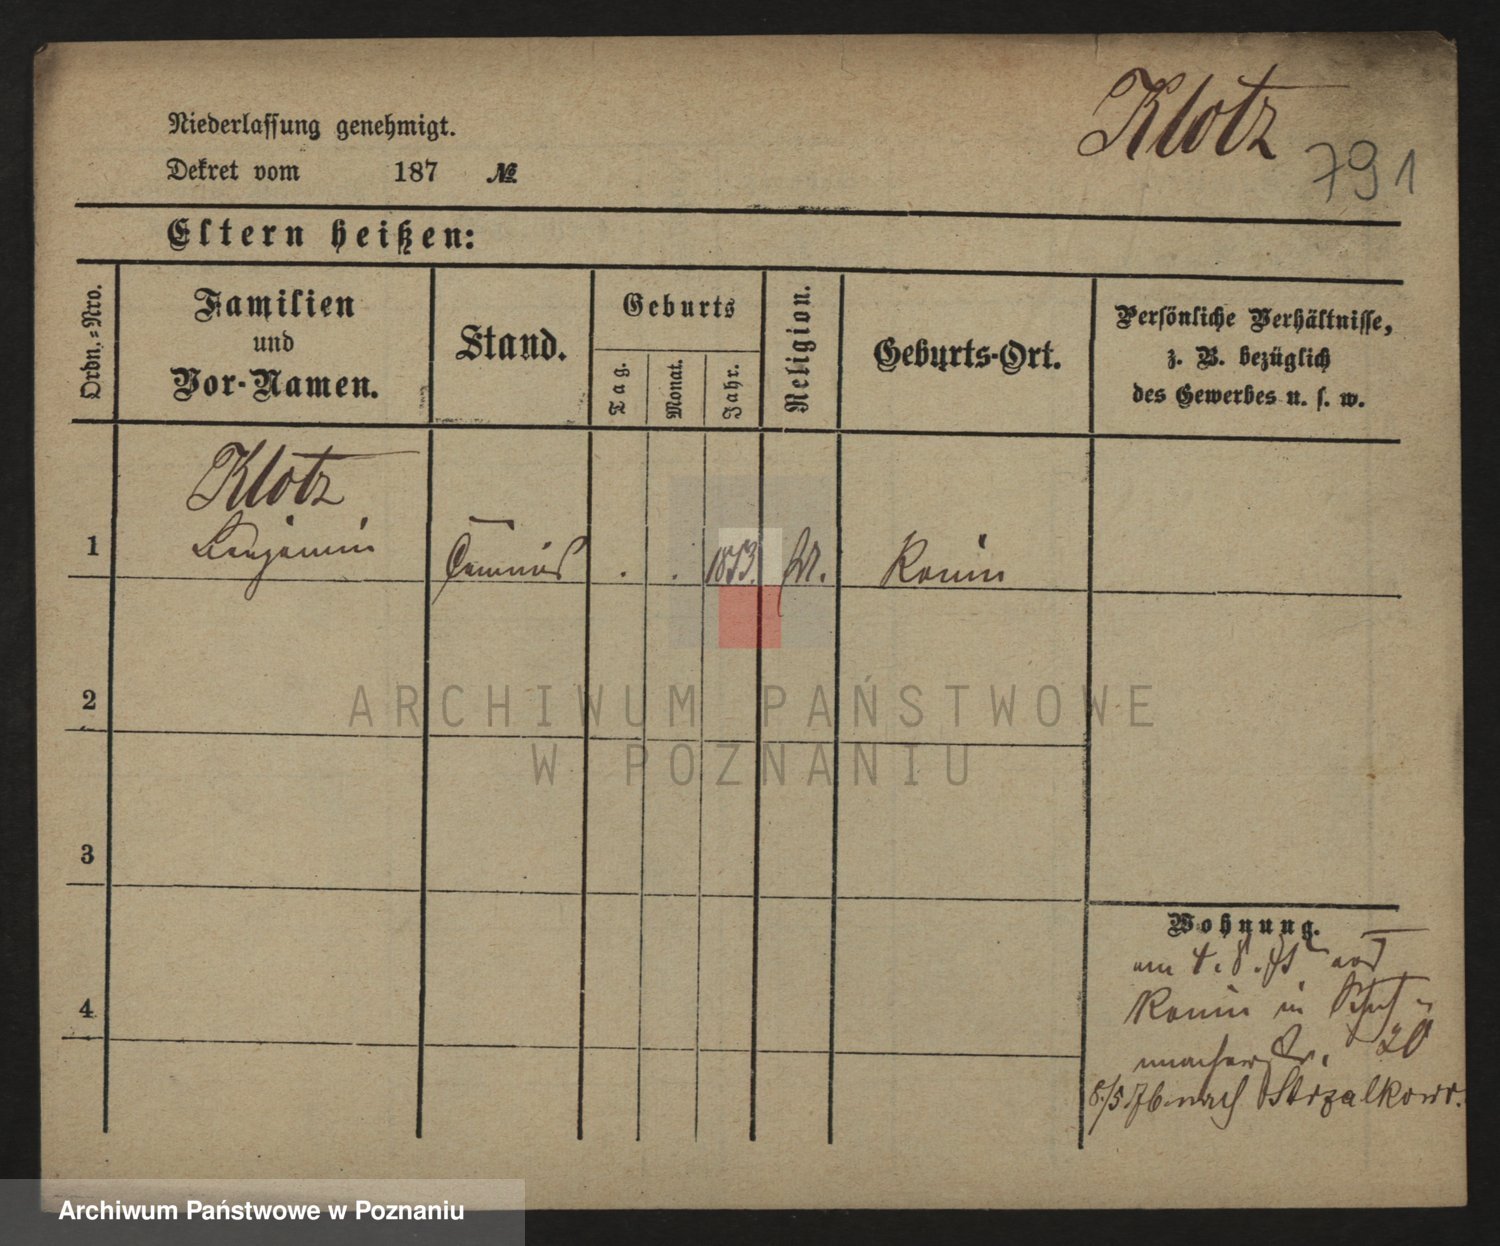 Klotz
791
Niederlassung genehmigt.
Dekret vom 187 №
Eltern heißen:
Ordn.-Nro.
Familien
und
Vor-Namen.
Stand.
Geburts
Tag.
Monat.
Jahr.
Religion.
Geburts-Ort.
Persönliche Verhältnisse,
z. B. bezüglich
des Gewerbes u. s. w.
Klotz
1 Benjamin Commis . . 1853. M. Konin
2
3
4
Wohnung.
am 4. 8. 75 aus
Konin in Schuh-
macherstr. 20
8/5 76 nach Strzalkowo.
ARCHIWUM PAŃSTWOWE
W POZNANIU
Archiwum Państwowe w Poznaniu